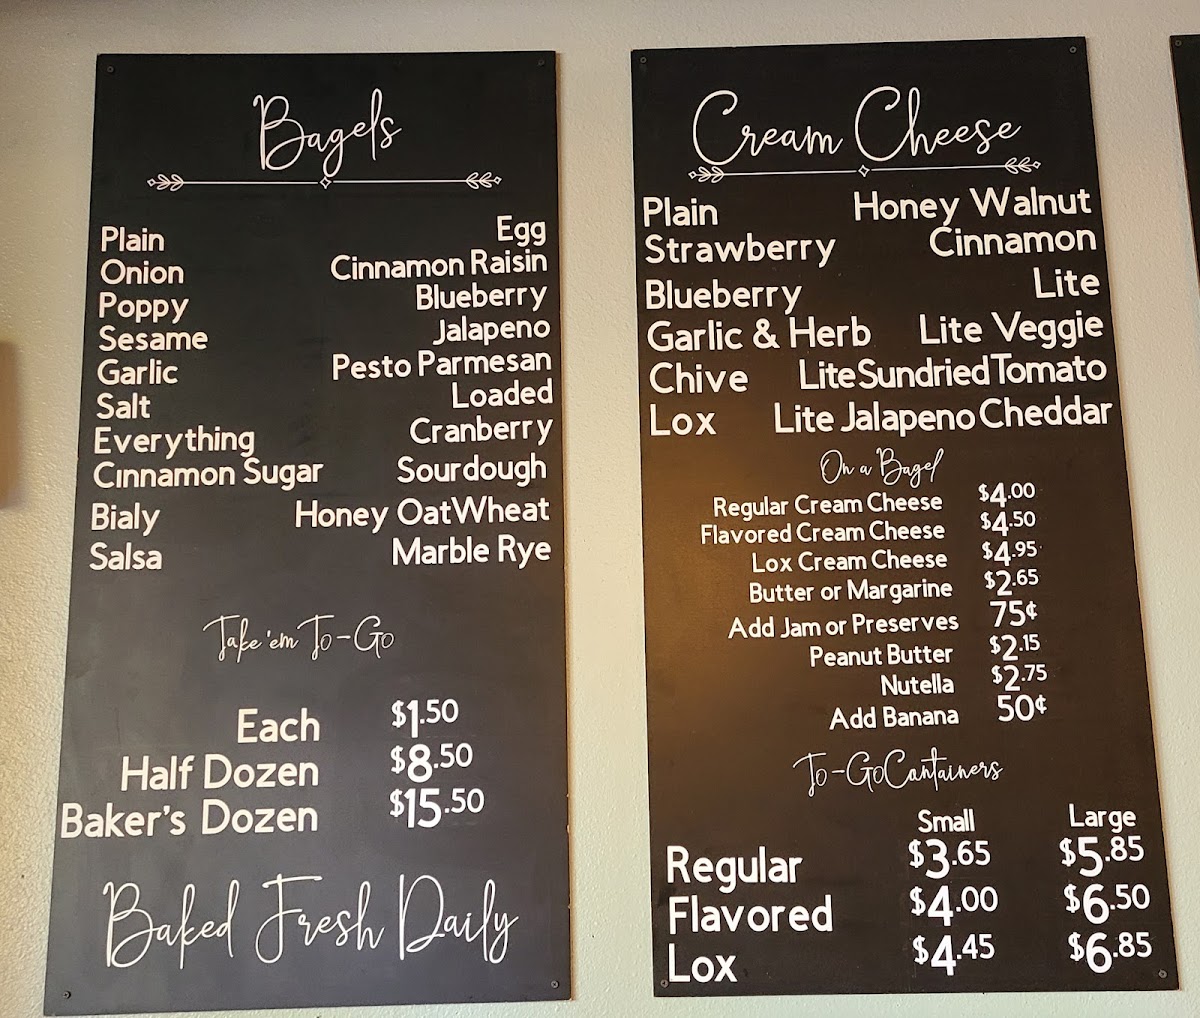 Bagels
Plain Egg
Onion Cinnamon Raisin
Poppy Blueberry
Sesame Jalapeno
Garlic Pesto Parmesan
Salt Loaded
Everything Cranberry
Cinnamon Sugar Sourdough
Bialy Honey OatWheat
Salsa Marble Rye
Take 'em To-Go
Each $1.50
Half Dozen $8.50
Baker's Dozen $15.50
Baked Fresh Daily
Cream Cheese
Plain Honey Walnut
Strawberry Cinnamon
Blueberry Lite
Garlic & Herb Lite Veggie
Chive Lite Sundried Tomato
Lox Lite Jalapeno Cheddar
On a Bagel
Regular Cream Cheese $4.00
Flavored Cream Cheese $4.50
Lox Cream Cheese $4.95
Butter or Margarine $2.65
Add Jam or Preserves 75¢
Peanut Butter $2.15
Nutella $2.75
Add Banana 50¢
To-Go Cantainers
Small Large
Regular $3.65 $5.85
Flavored $4.00 $6.50
Lox $4.45 $6.85